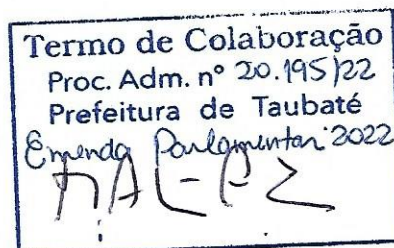 Termo de Colaboração
Proc. Adm. nº 20.195/22
Prefeitura de Taubaté
Emenda Parlamentar 2022